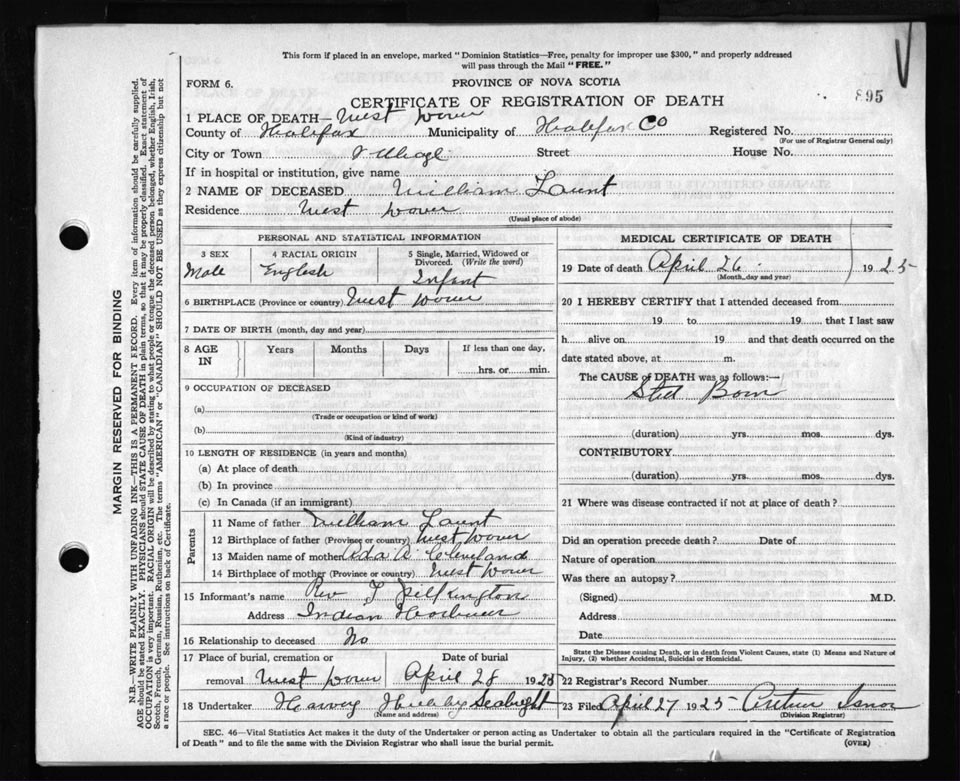 This form if placed in an envelope, marked " Dominion Statistics—Free, penalty for improper use $300, " and properly addressed
will pass through the Mail "FREE."
FORM 6.
PROVINCE OF NOVA SCOTIA
895
CERTIFICATE OF REGISTRATION OF DEATH
1 PLACE OF DEATH— West Dover
County of Halifax Municipality of Halifax Co Registered No.
(For use of Registrar General only)
City or Town Village Street House No.
If in hospital or institution, give name
2 NAME OF DECEASED William Faunt
Residence West Dover
(Usual place of abode)
PERSONAL AND STATISTICAL INFORMATION
3 SEX 4 RACIAL ORIGIN 5 Single, Married, Widowed or Divorced. (Write the word)
Male English Infant
6 BIRTHPLACE (Province or country) West Dover
7 DATE OF BIRTH (month, day and year)
8 AGE IN Years Months Days If less than one day,
hrs. or min.
9 OCCUPATION OF DECEASED
(a)
(Trade or occupation or kind of work)
(b)
(Kind of industry)
10 LENGTH OF RESIDENCE (in years and months)
(a) At place of death
(b) In province
(c) In Canada (if an immigrant)
Parents
11 Name of father William Faunt
12 Birthplace of father (Province or country) West Dover
13 Maiden name of mother Ada A Cleveland
14 Birthplace of mother (Province or country) West Dover
15 Informant's name Rev T Pilkington
Address Indian Harbour
16 Relationship to deceased No
17 Place of burial, cremation or Date of burial
removal West Dover April 28 1925
18 Undertaker Harvey Hubley Seabright
(Name and address)
MEDICAL CERTIFICATE OF DEATH
19 Date of death April 26 1925
(Month, day and year)
20 I HEREBY CERTIFY that I attended deceased from
19 to 19 that I last saw
h alive on 19 and that death occurred on the
date stated above, at m.
The CAUSE of DEATH was as follows:—
Still Born
(duration) yrs. mos. dys.
CONTRIBUTORY
(duration) yrs. mos. dys.
21 Where was disease contracted if not at place of death?
Did an operation precede death? Date of
Nature of operation
Was there an autopsy?
(Signed) M.D.
Address
Date
State the Disease causing Death, or in death from Violent Causes, state (1) Means and Nature of
Injury, (2) whether Accidental, Suicidal or Homicidal.
22 Registrar's Record Number
23 Filed April 27 1925 Arthur Isnor
(Division Registrar)
SEC. 46—Vital Statistics Act makes it the duty of the Undertaker or person acting as Undertaker to obtain all the particulars required in the "Certificate of Registration
of Death" and to file the same with the Division Registrar who shall issue the burial permit. (OVER)
MARGIN RESERVED FOR BINDING
N.B.—WRITE PLAINLY WITH UNFADING INK—THIS IS A PERMANENT RECORD. Every item of information should be carefully supplied.
AGE should be stated EXACTLY. PHYSICIANS should STATE CAUSE OF DEATH in plain terms, so that it may be properly classified. Exact statement of
OCCUPATION is very important. RACIAL ORIGIN will be described by stating to what people or tongue the deceased person belonged, whether English, Irish,
Scotch, French, German, Russian, Ruthenian, etc. The terms "AMERICAN" or "CANADIAN" SHOULD NOT BE USED as they express citizenship but not
a race or people. See instructions on back of Certificate.